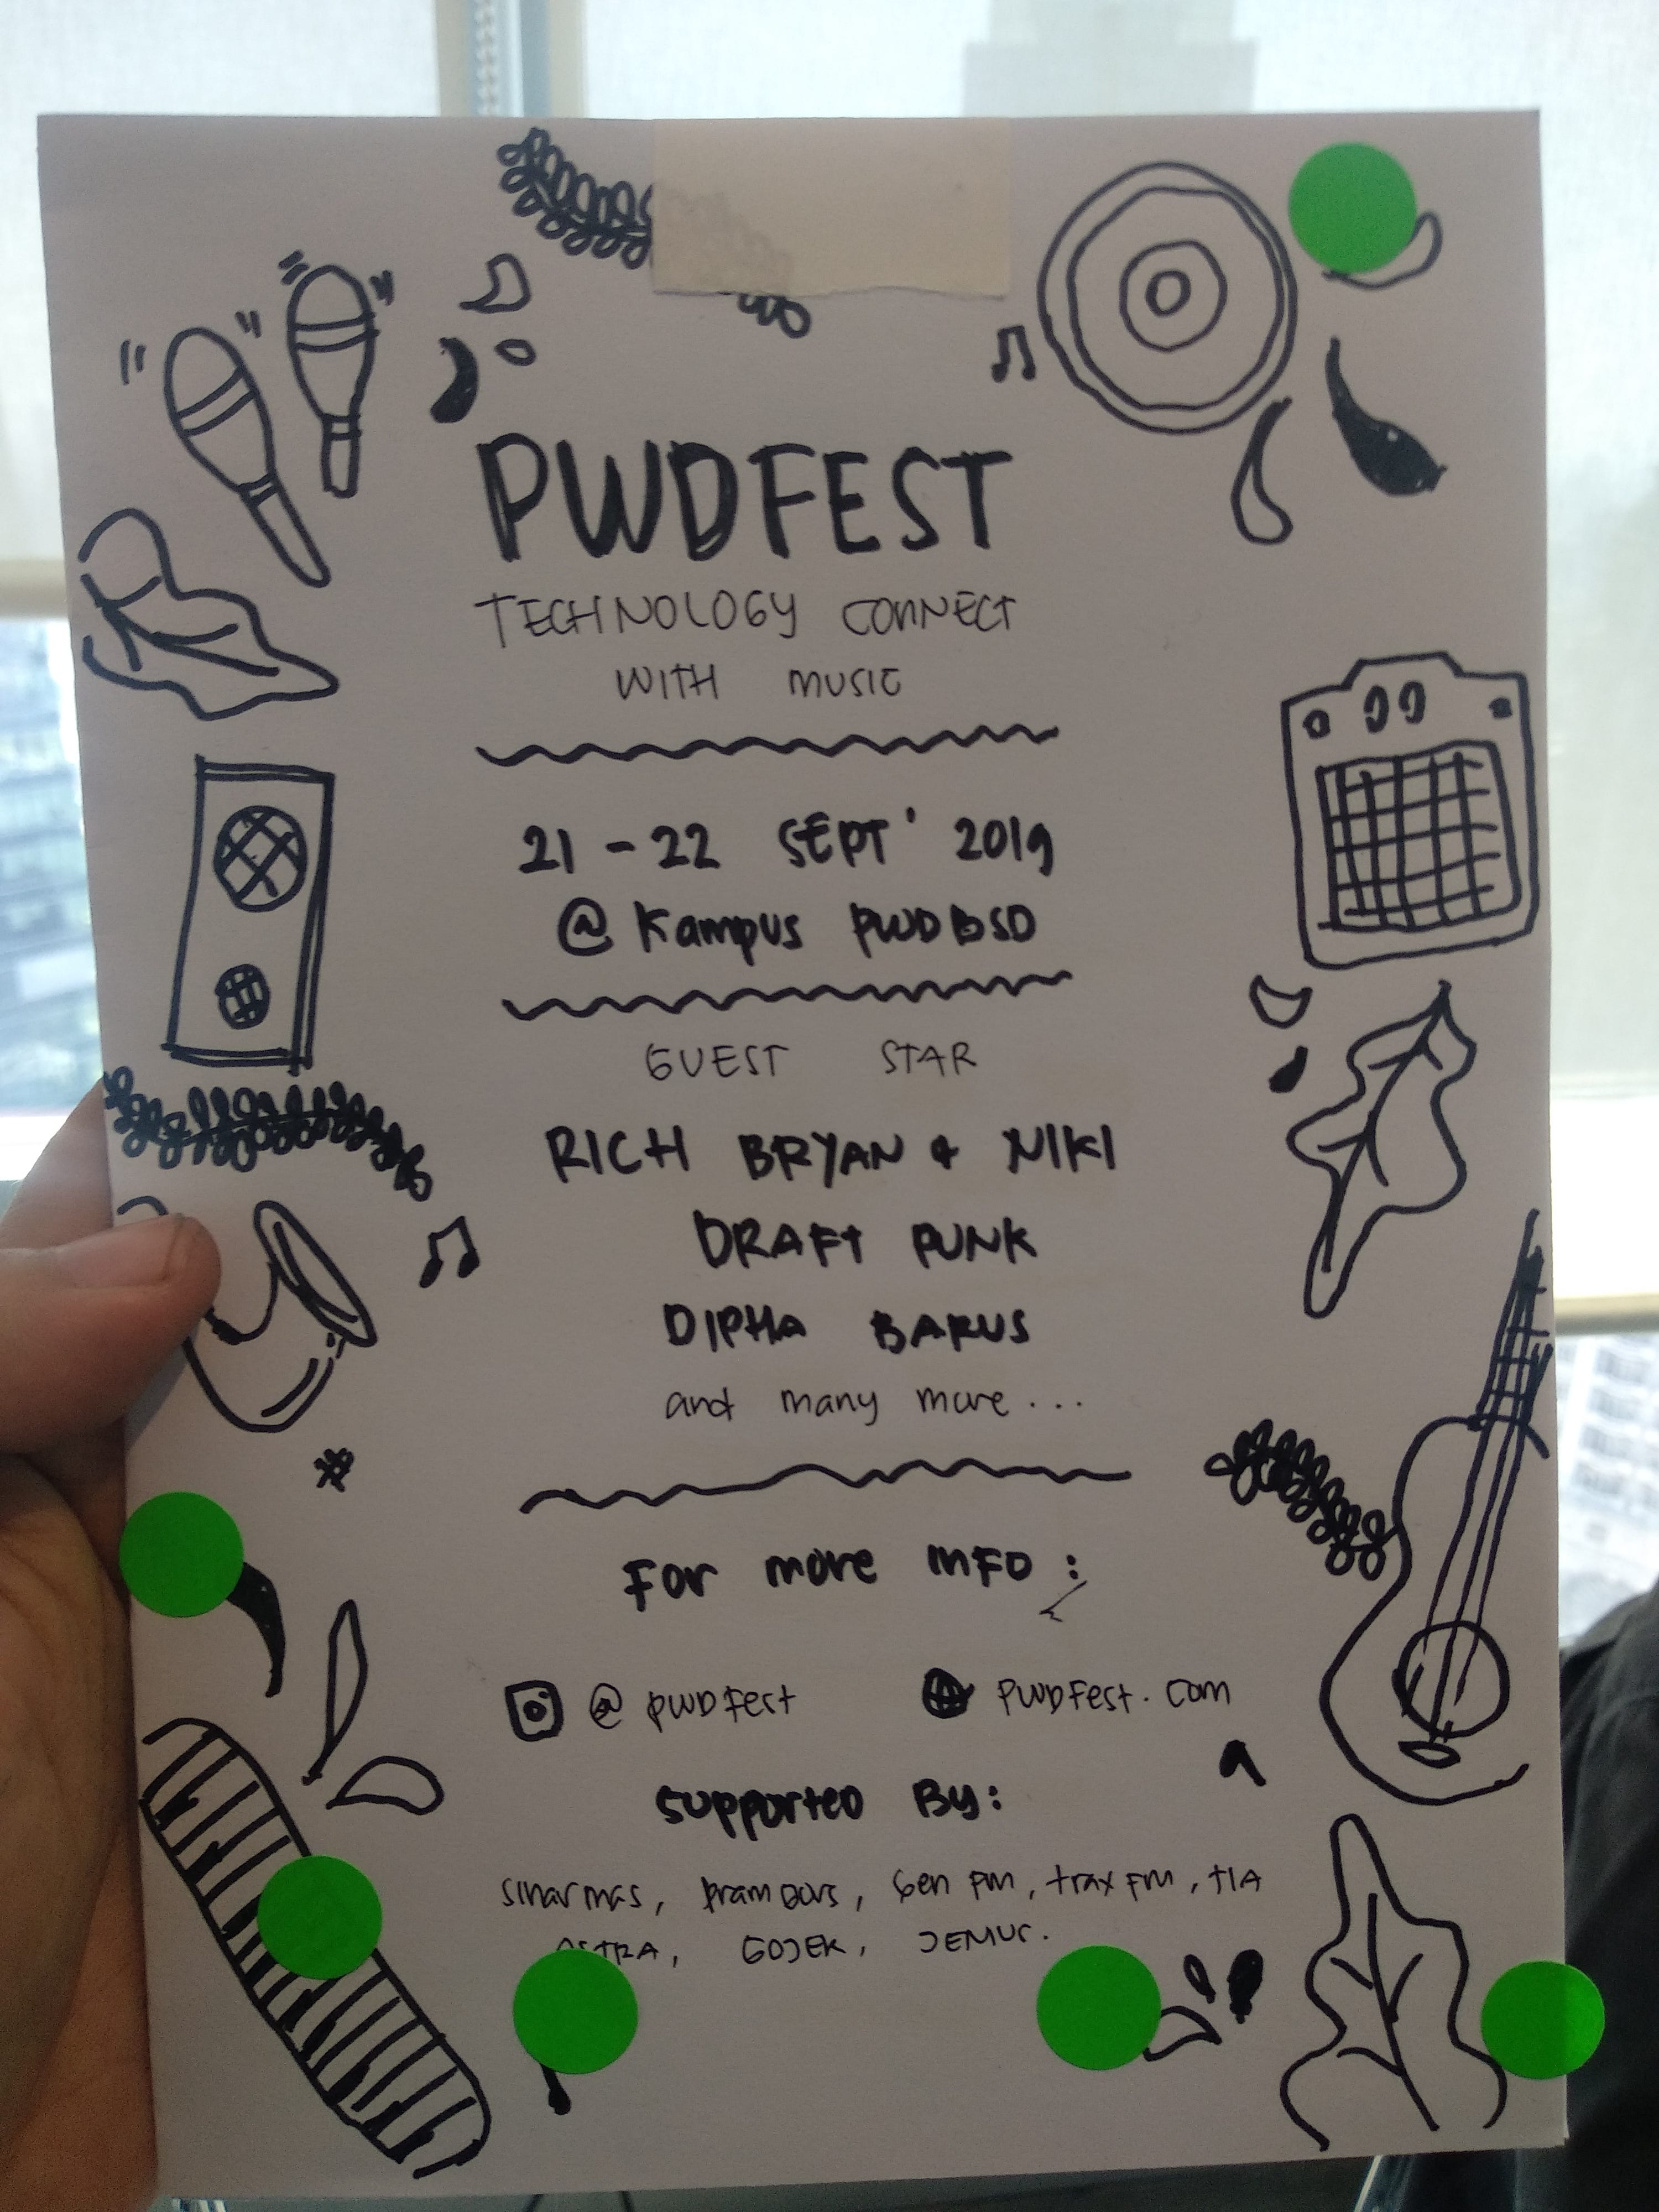 PWDFEST
TECHNOLOGY CONNECT
WITH MUSIC
21 - 22 SEPT' 2019
@ Kampus PWDBSD
GUEST STAR
RICH BRYAN & NIKI
DRAFT PUNK
DIPHA BARUS
and many more...
For more INFO :
@ pwDFest
PWDFest.com
supported By:
sinarmas, pramBors, Gen FM, trax FM,
GOJEK,